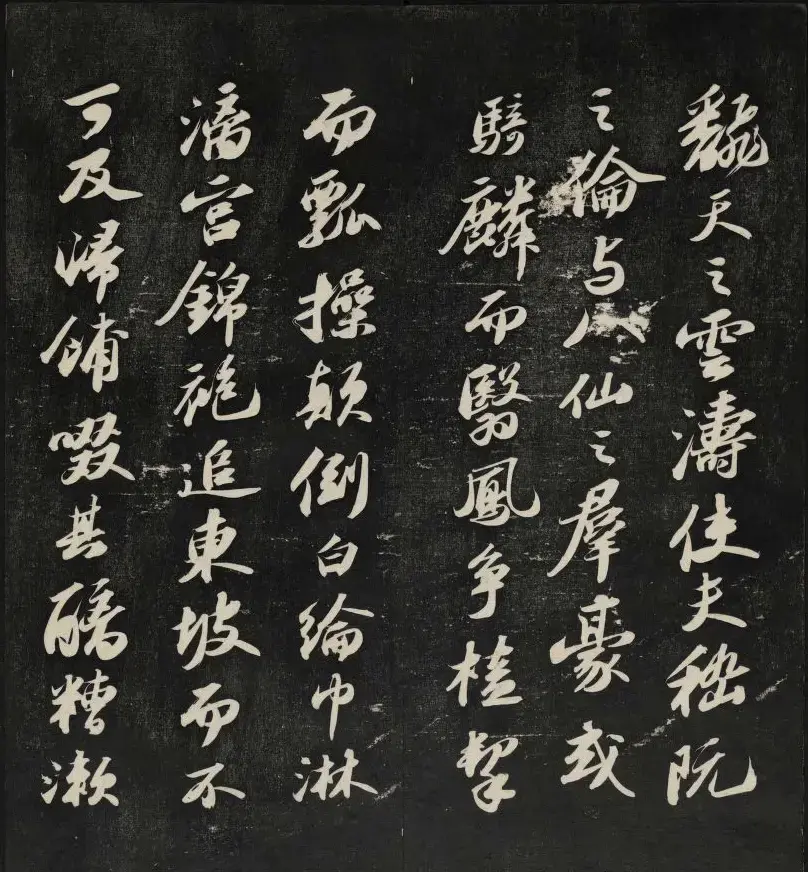 翻天之雲濤使夫嵇阮
之倫与八仙之羣豪或
騎麟而翳鳳爭榼挈
而瓢操顛倒白綸巾淋
漓宮錦袍追東坡而不
可及歸餔歠其醨糟漱